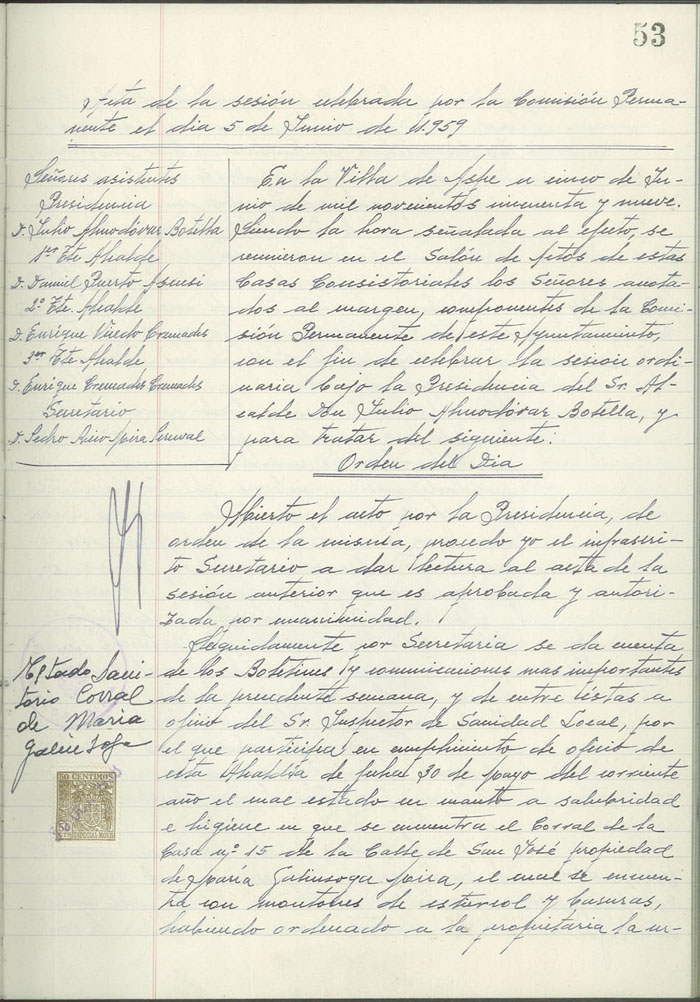 53
Acta de la sesión celebrada por la Comisión Perma-
nente el dia 5 de Junio de 1.959
Señores asistentes
Presidencia
D. Julio Almodóvar Botella
1er Tte Alcalde
D. Daniel Puerto Asensi
2º Tte Alcalde
D. Enrique Cremades
3er Tte Alcalde
D. Enrique Cremades Cremades
Secretario
D. Pedro Rico Mira
En la Villa de Aspe a cinco de Ju-
nio de mil novecientos cincuenta y nueve.
Siendo la hora señalada al efecto, se
reunieron en el Salón de Actos de estas
Casas Consistoriales los Señores anota-
dos al margen, componentes de la Comi-
sión Permanente de este Ayuntamiento,
con el fin de celebrar la sesion ordi-
naria bajo la Presidencia del Sr. Al-
calde Don Julio Almodóvar Botella, y
para tratar del siguiente:
Orden del Dia
Abierto el acto por la Presidencia, de
orden de la misma, procedo yo el infrascri-
to Secretario a dar lectura al acta de la
sesión anterior que es aprobada y autori-
zada por unanimidad.
Seguidamente por Secretaría se da cuenta
de los Boletines y comunicaciones mas importantes
de la precedente semana, y de entre éstas a
oficio del Sr. Inspector de Sanidad Local, por
el que participa en cumplimiento de oficio de
esta Alcaldía de fecha 30 de Mayo del corriente
año el mal estado en cuanto a salubridad
e higiene en que se encuentra el Corral de la
Casa nº 15 de la Calle de San José propiedad
de María Galinsoga Mira, el cual se encuen-
tra con montones de estiercol y basuras,
habiendo ordenado a la propietaria la ur-
Estado Sani-
tario Corral
de Maria
50 CENTIMOS
ESPECIAL MOVIL